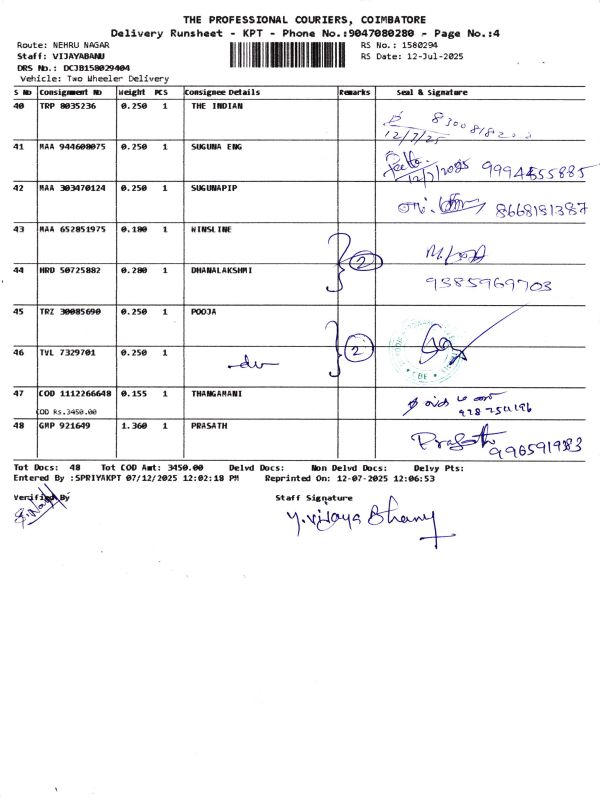 THE PROFESSIONAL COURIERS, COIMBATORE
Delivery Runsheet - KPT - Phone No.:9047080280 - Page No.:4
Route: NEHRU NAGAR RS No.: 1580294
Staff: VIJAYABANU RS Date: 12-Jul-2025
DRS No.: DCJB158029404
Vehicle: Two Wheeler Delivery
S No Consignment No Weight PCS Consignee Details Remarks Seal & Signature
40 TRP 8035236 0.250 1 THE INDIAN
12/7/25
41 MAA 944608075 0.250 1 SUGUNA ENG
12/7/2025 9994455885
42 MAA 303470124 0.250 1 SUGUNAPIP
8668181387
43 MAA 652851975 0.180 1 WINSLINE
2
44 HRD 50725882 0.280 1 DHANALAKSHMI
9385969703
45 TRZ 30085690 0.250 1 POOJA
2
46 TVL 7329701 0.250 1
47 COD 1112266648 0.155 1 THANGAMANI
COD Rs.3450.00
48 GMP 921649 1.360 1 PRASATH
Prasath
Tot Docs: 48 Tot COD Amt: 3450.00 Delvd Docs: Non Delvd Docs: Delvy Pts:
Entered By :SPRIYAKPT 07/12/2025 12:02:18 PM Reprinted On: 12-07-2025 12:06:53
Verified By Staff Signature
Y.Vijaya Bhanu